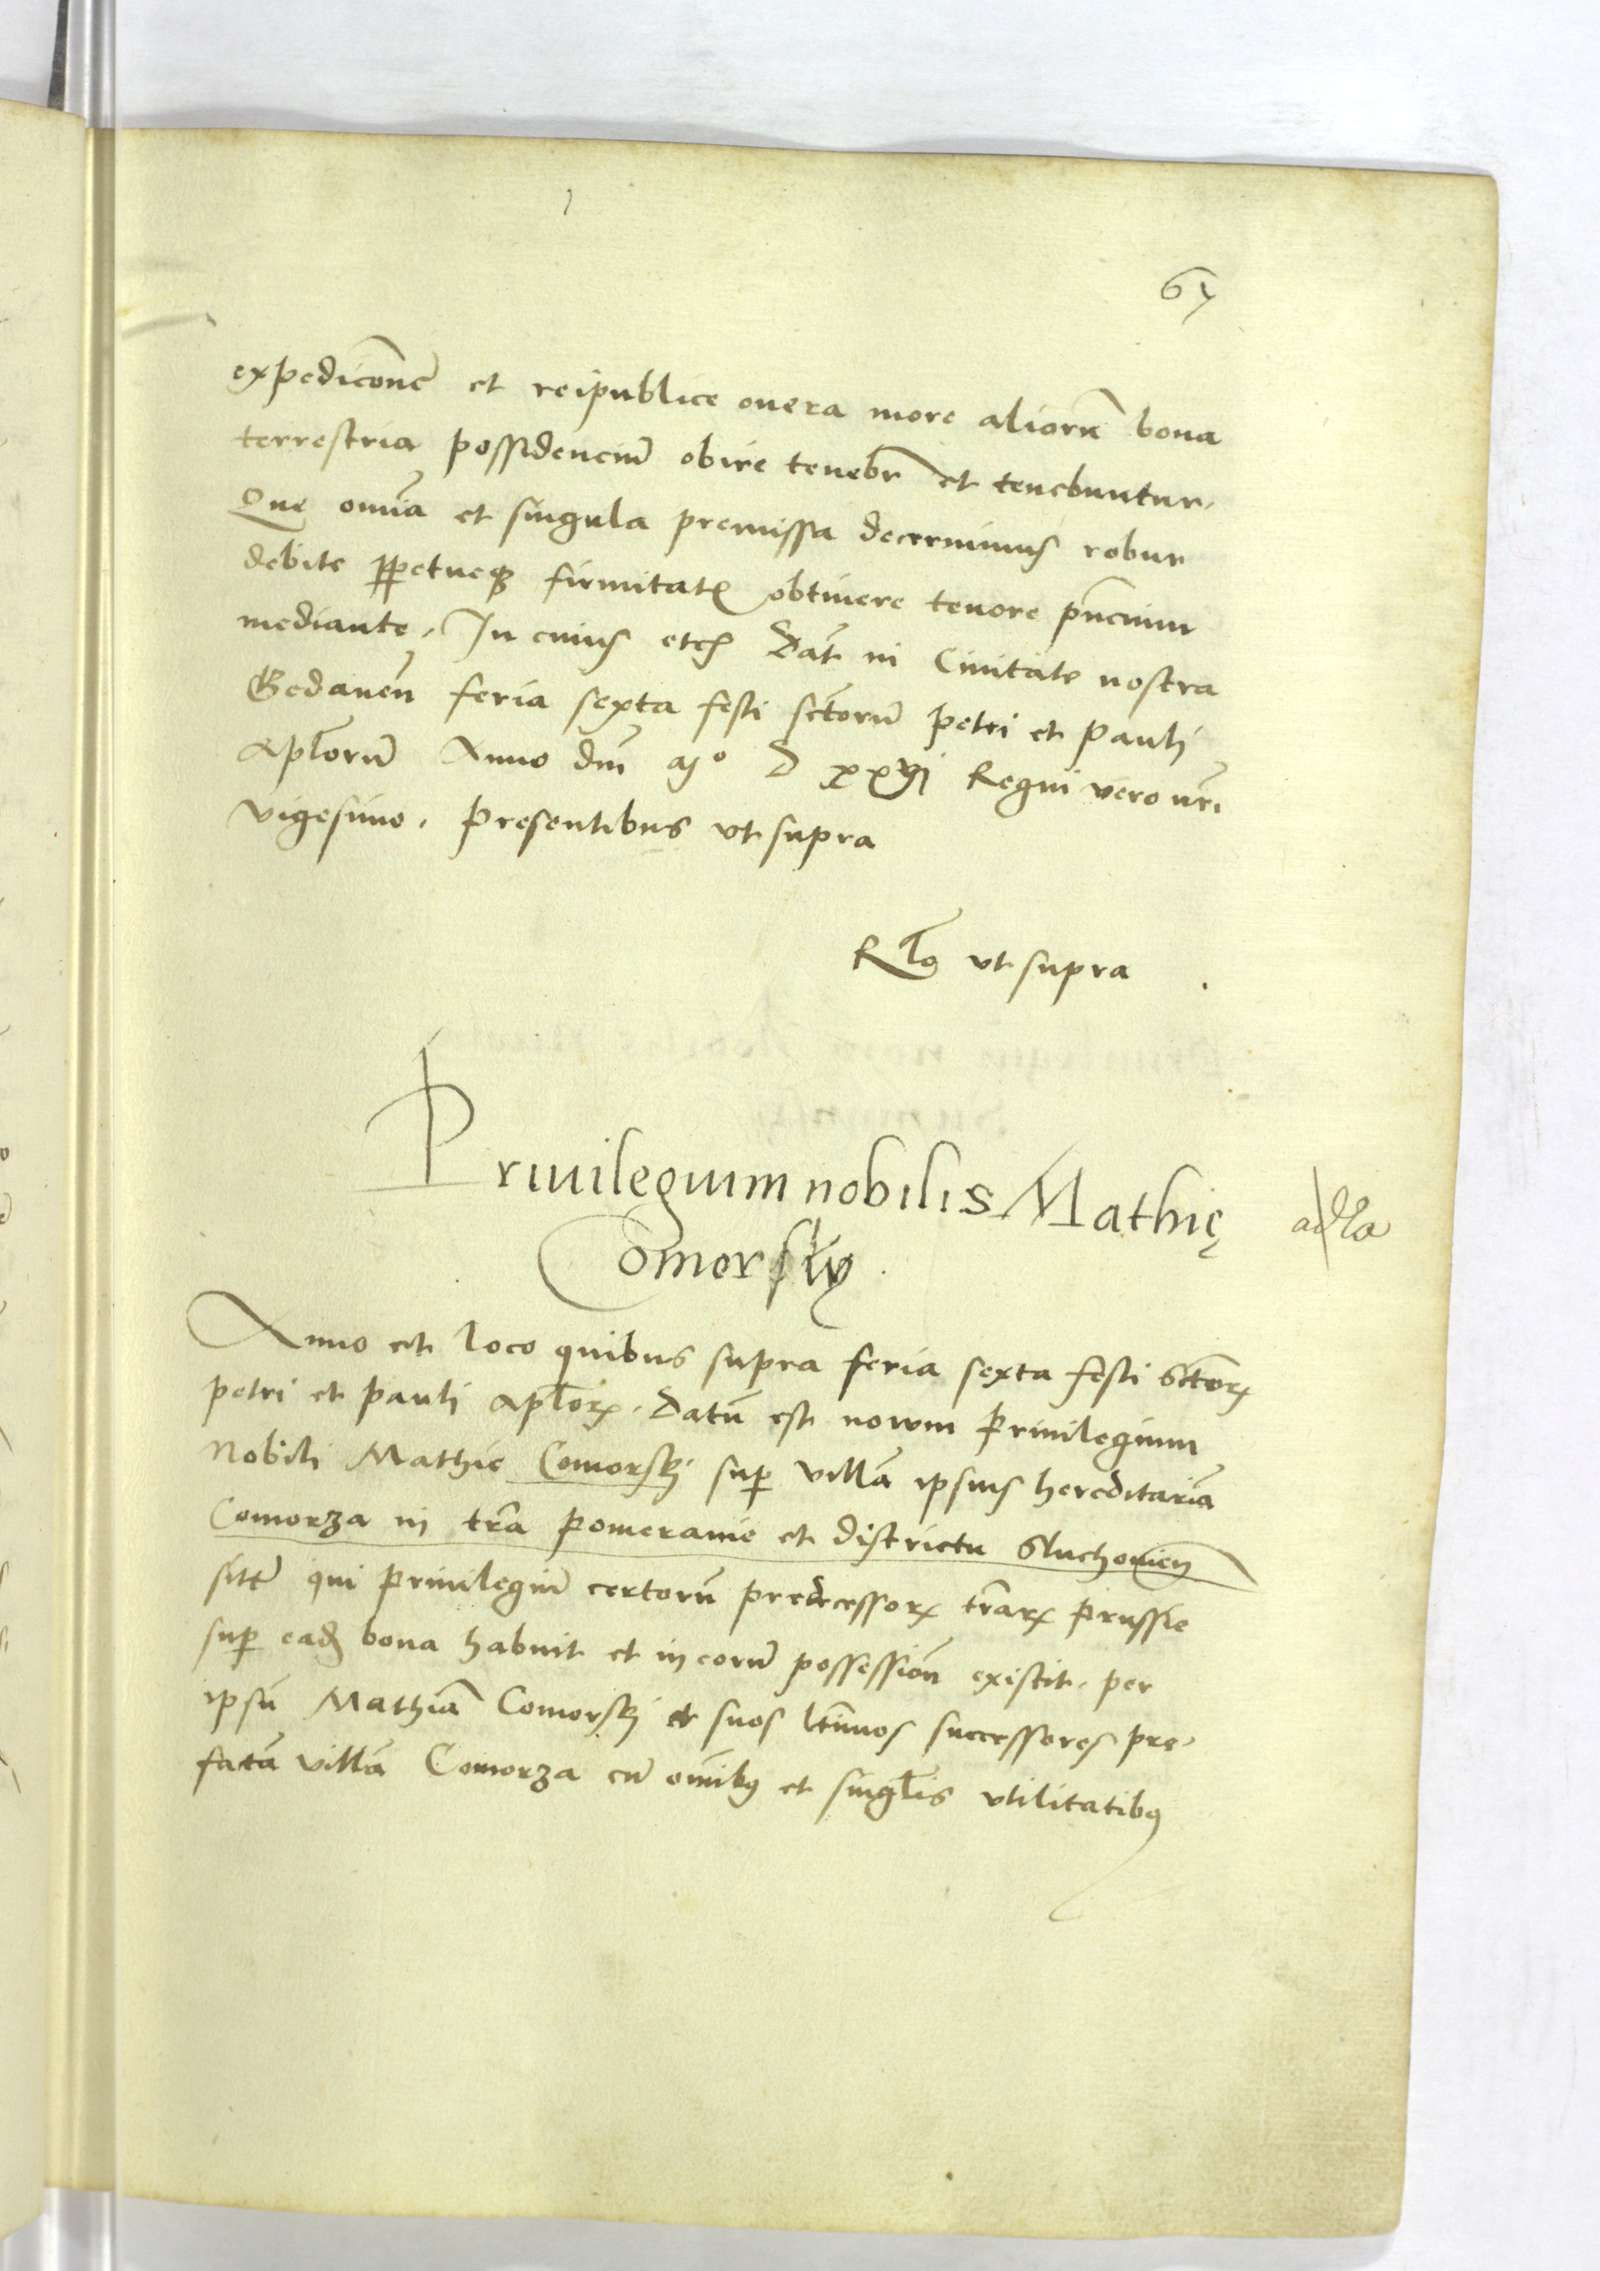 67
expedicōne et reipublice onera more aliorū bona
terrestria possidenciū obire tenebr̄ et tenebuntur.
Que om̄ia et singula premissa decernimus robur
debite ꝑpetueqꝫ firmitatꝭ obtinere tenore pn̄cium
mediante. In cuius etcꝭ Dat̄ in Ciuitate nostra
Gedanen̄ feria sexta festi sctōrū petri et pauli
apl̄orū Anno dn̄i Mº D xxvj Regni vero nr̄i
vigesimo. Presentibus vt supra
Rl̄o vt supra
Priuilegium nobilis Mathię
Comorsky.
Anno et loco quibus supra feria sexta festi Sctōrꝝ
petri et pauli apl̄orꝝ. Datū est nowm Priuilegium
Nobili Mathie Comorskj sup̄ villā ipsius hereditariā
Comorza in tr̄a pomeranie et districtu Sluchouien̄
sitā qui priuilegiū certorū predecessorꝝ tr̄arꝝ prussie
sup̄ eadꝭ bona habuit et in eorū possession̄ existit. per
ipsū Mathiā Comorskj et suos ltīmos successores pre-
fatā villā Comorza cū om̄ibꝰ et singl̄is vtilitatibꝰ